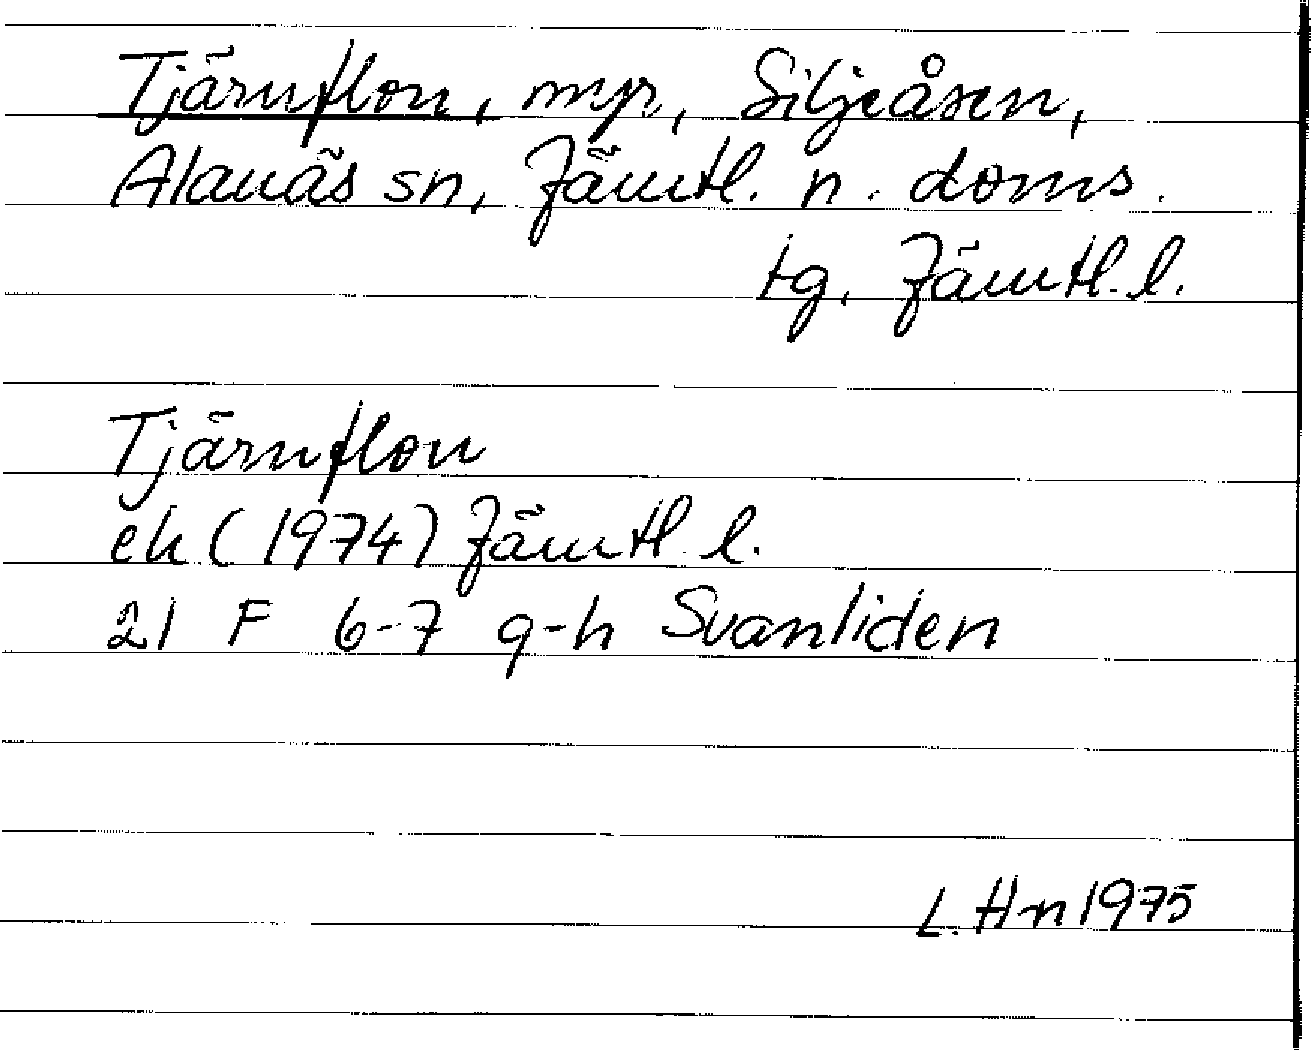 Tjärnflon, myr, Siljeåsen,
Alanäs sn, Jämtl. n. doms.
tg, Jämtl. l.
Tjärnflon
ek (1974) Jämtl. l.
21 F 6-7 g-h Svanliden
L. Hn 1975